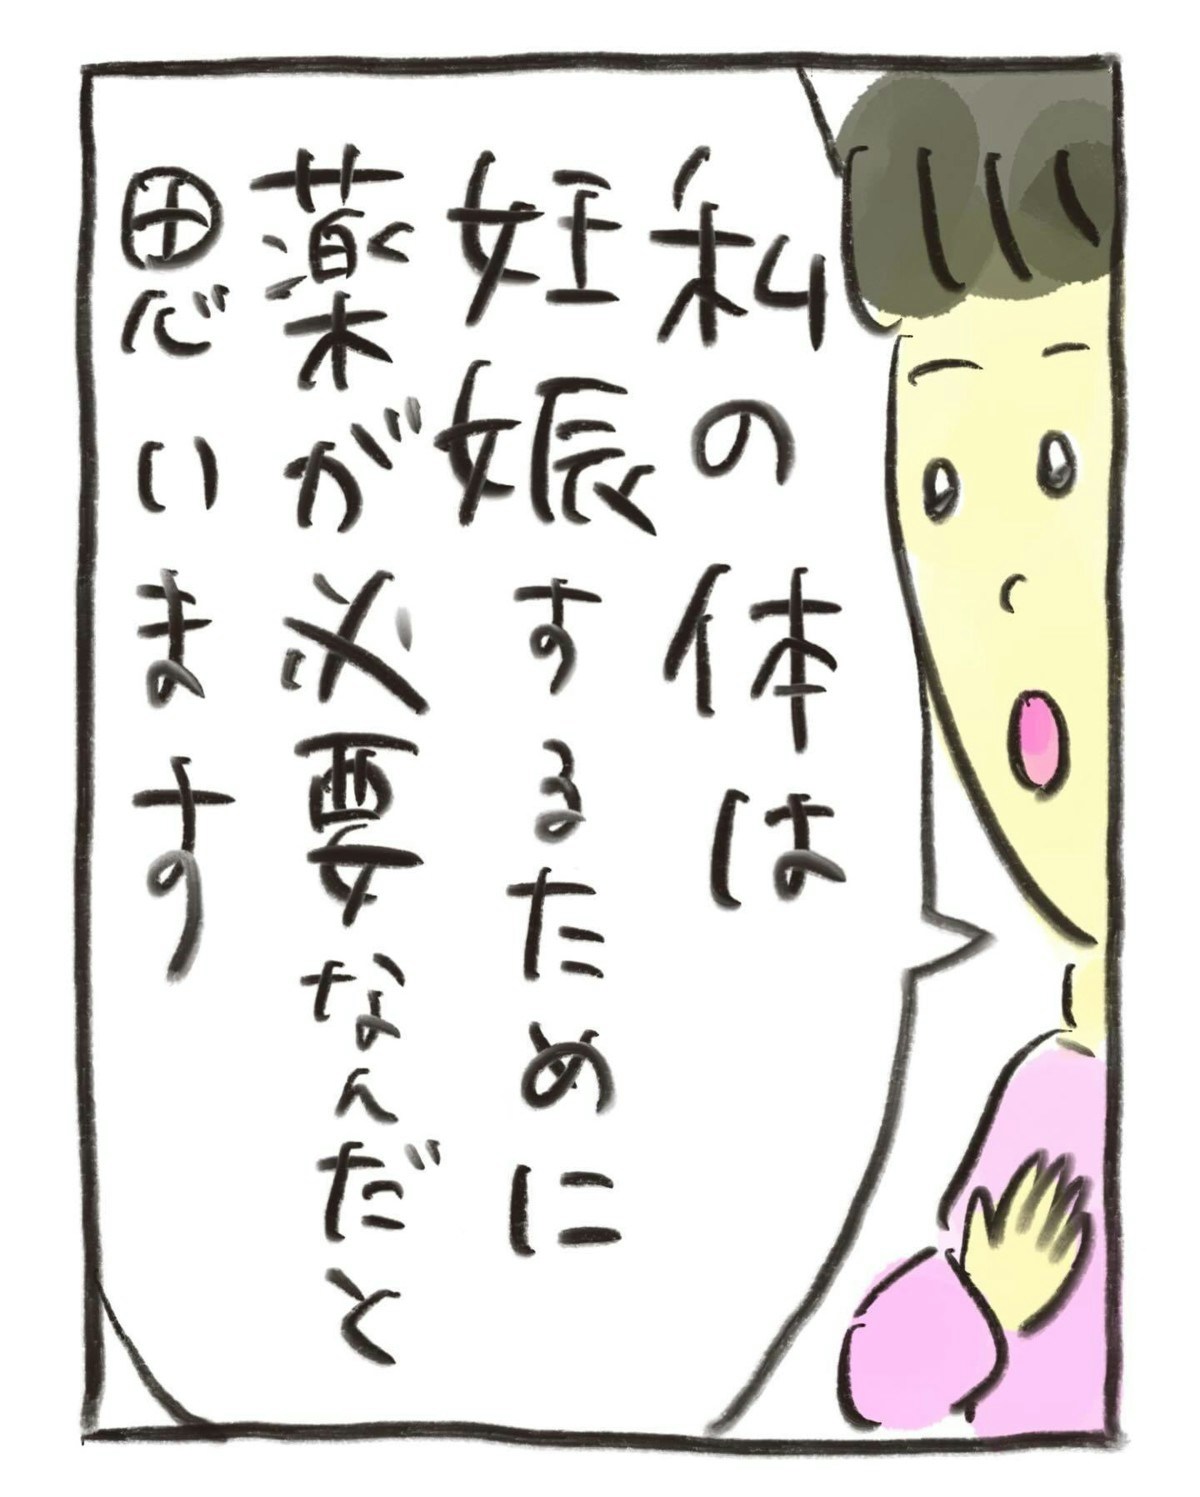 私の体は
妊娠するために
薬が必要なんだと
思います